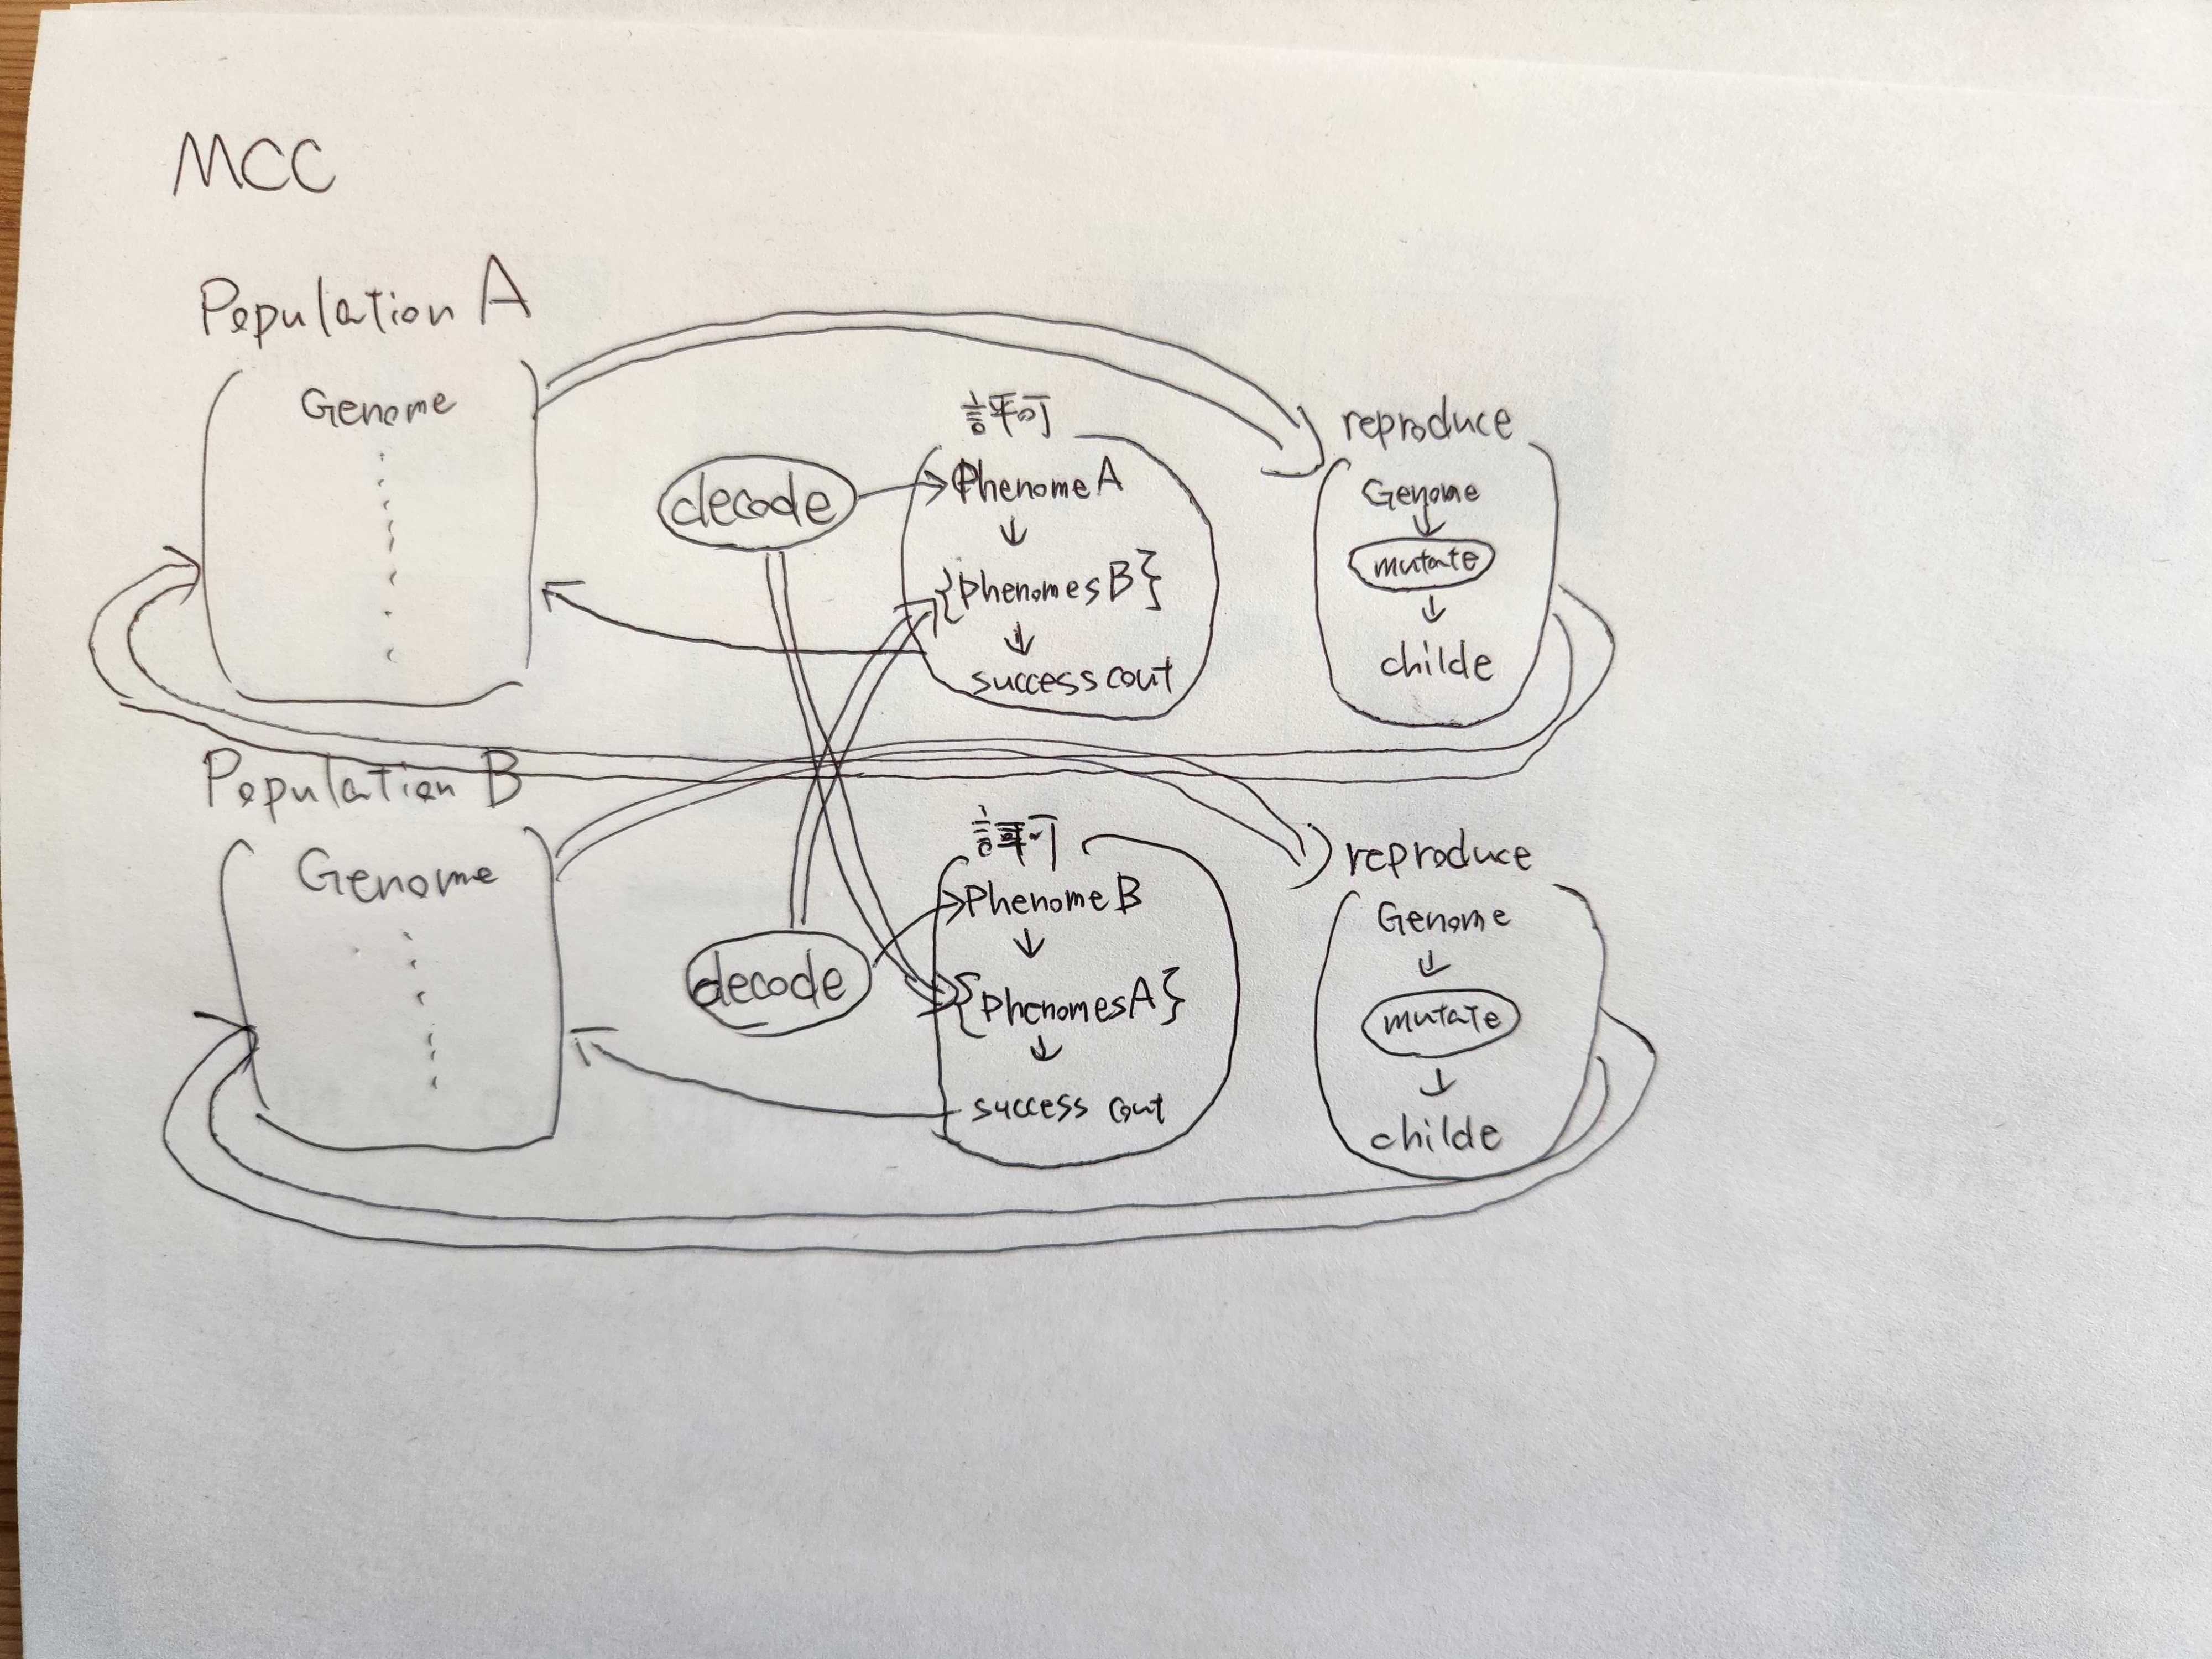 MCC
Population A
Genome
decode
評可
Phenome A
↓
{Phenomes B}
↓
success cout
reproduce
Genome
↓
mutate
↓
childe
Population B
Genome
decode
評可
Phenome B
↓
{Phenomes A}
↓
success cout
reproduce
Genome
↓
mutate
↓
childe